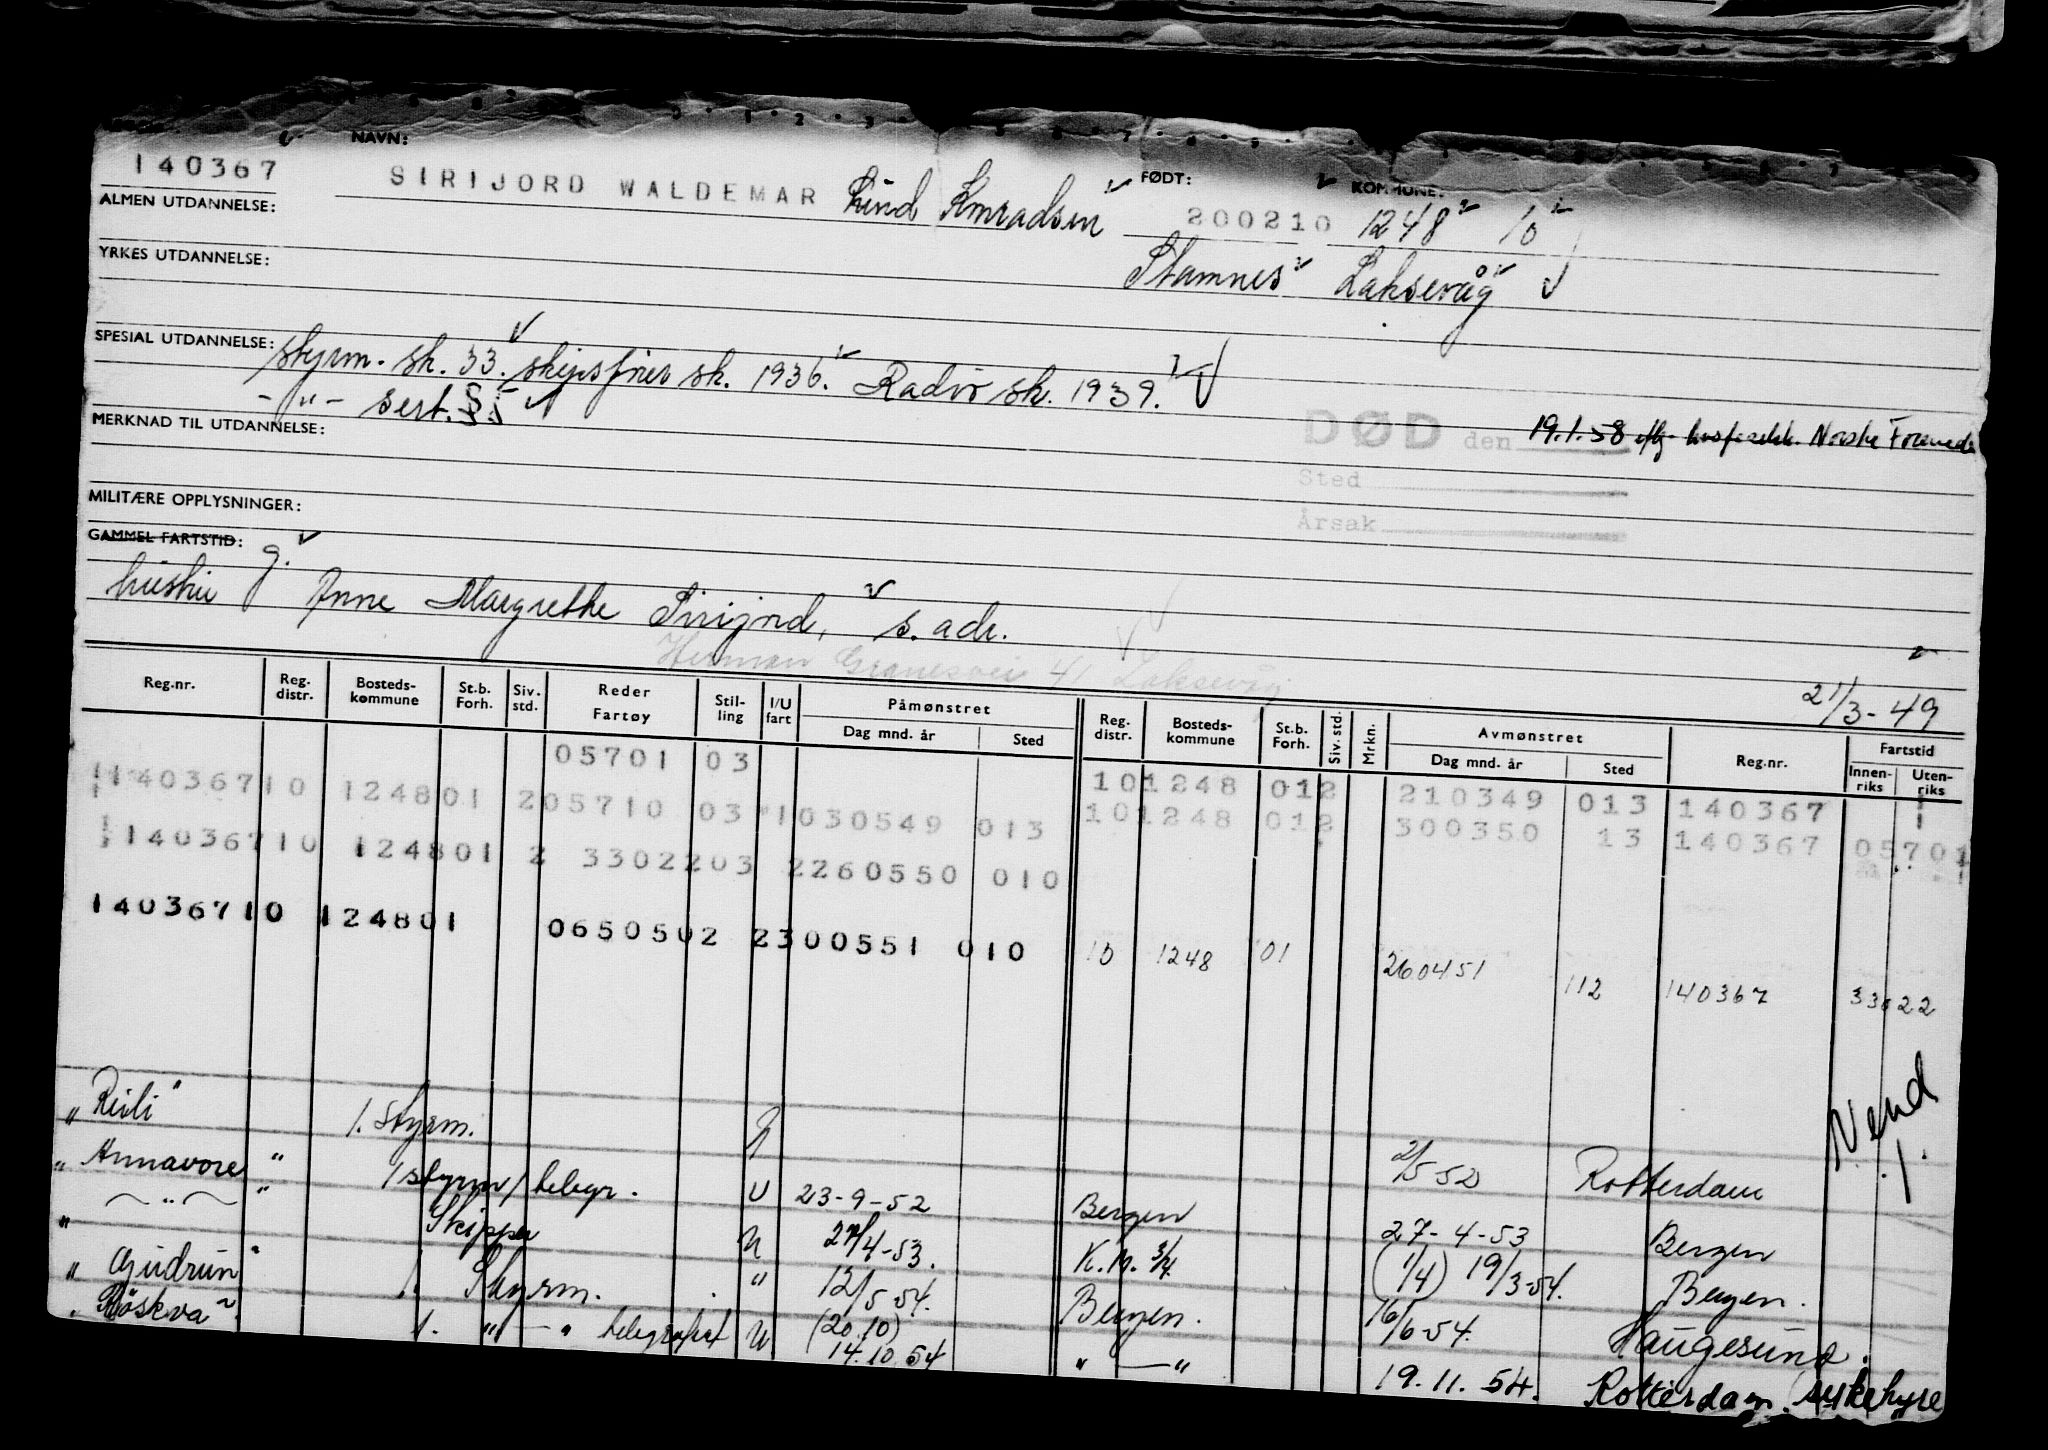 NAVN: FØDT: KOMMUNE:
140367 SIRIJORD WALDEMAR Lind Konradsen 200210 1248 10
ALMEN UTDANNELSE:
Stamnes Laksevåg
YRKES UTDANNELSE:
SPESIAL UTDANNELSE: styrm. sk. 33. skipsfører sk. 1936. Radio sk. 1939.
- " - sert. §5
MERKNAD TIL UTDANNELSE:
DØD den 19.1.58 Norske Forenede
Sted
Årsak
MILITÆRE OPPLYSNINGER:
GAMMEL FARTSTID: g.
hustru Anne Margrethe Sirijord, s. adr.
Herman Granesvei 41 Laksevåg
21/3-49
Reg.nr. Reg. distr. Bosteds-kommune St.b. Forh. Siv. std. Reder Fartøy Stil-ling I/U fart Påmønstret Dag mnd. år Sted Reg. distr. Bosteds-kommune St.b. Forh. Siv. std. Mrkn. Avmønstret Dag mnd. år Sted Reg.nr. Fartstid Innen-riks Uten-riks
05701 03 101248 012 210349 013 140367
14036710 124801 205710 03 1030549 013 101248 012 300350 13 140367 05701
14036710 124801 2 3302203 2260550 010
14036710 124801 0650502 2300551 010 10 1248 01 260451 112 140367 33022
"Reili" 1. styrm. 2/5 52 Rotterdam
"Annavore" 1 styrm/telegr. U 23-9-52 Bergen 27-4-53 Bergen
" - " - " Skipper U 27/4-53. K.M. 3/4 (1/4) 19/3-54. Bergen.
"Gudrun" 1. Styrm. " 12/5 54. Bergen. 16/6-54. Haugesund.
"Röskva" 1. " - " telegrafist U (20.10) 14.10.54 " - " 19.11.54. Rotterdam. (sykehyre
Vend!